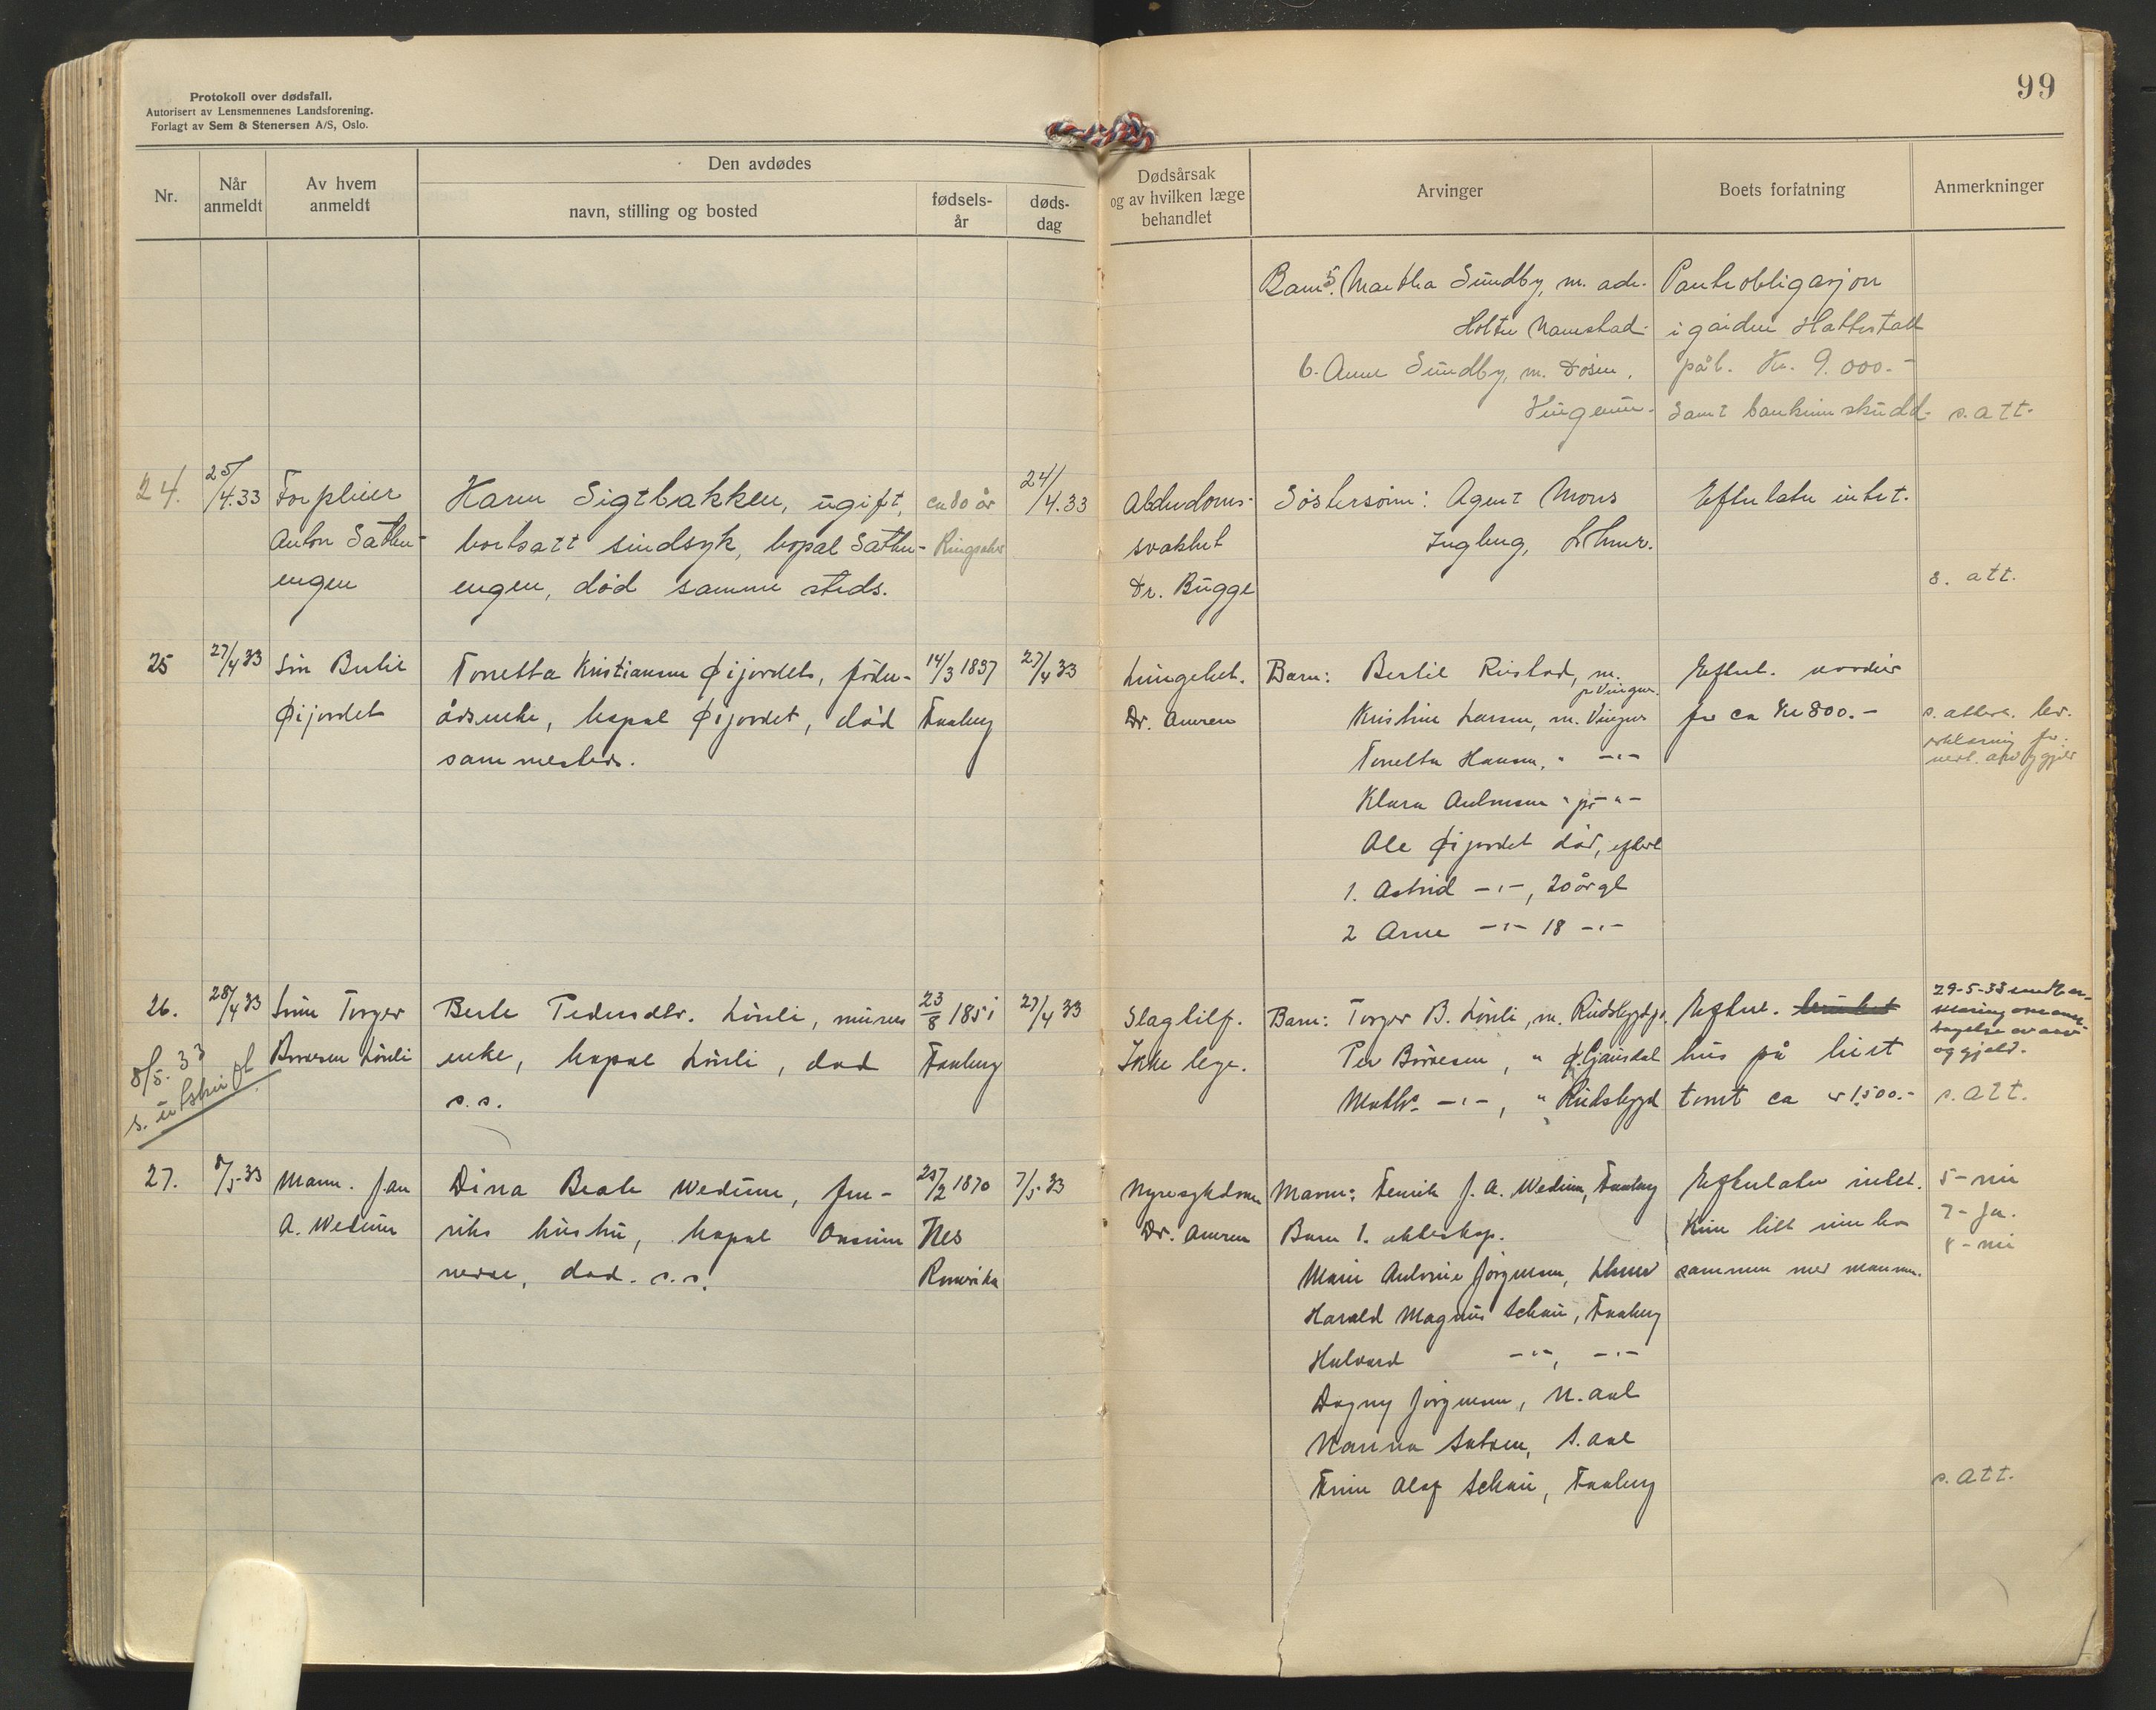 Protokoll over dødsfall.
Autorisert av Lensmennenes Landsforening.
Forlagt av Sem & Stenersen A/S, Oslo.
99
Nr.
Når anmeldt
Av hvem anmeldt
Den avdødes
navn, stilling og bosted
fødsels-år
døds-dag
Dødsårsak
og av hvilken læge
behandlet
Arvinger
Boets forfatning
Anmerkninger
Barn: 5. Martha Sundby, m. adr.
Holter Nannestad.
6. Anne Sundby, m.
Pantobligasjon
i gården
pål. Kr. 9.000.-
samt bankinnskudd.
s. att.
24.
25/4.33
Forpleier
Anton Sæther-
engen
Karen Sigtbakken, ugift,
bortsatt sindsyk, bopæl Sæther-
engen, død samme steds.
ca 80 år
Ringsaker
24/4.33
Alderdoms-
svakhet
Dr. Bugge
Søstersønn: Agent Mons
Lhmr.
Efterlater intet.
s. att.
25
27/4 33
Øijordet
Tonetta Kristiansen Øijordet, føder-
ådsenke, bopæl Øijordet, død
sammesteds.
14/3 1837
Faaberg
27/4 33
Lungebet.
Dr. Amren
Barn: Bertil Rustad, m.
Kristine Larsen, m. Vingnes
Tonetta Hansen, " -"-
Klara
Ole Øijordet død, efterl
1. Astrid -"-, 20 år gl
2 Arne -"- 18 -"-
Efterl. verdier
for ca Kr 800.-
26.
28/4 33
Sønn Torger
Børresen Lönli
8/5.33
s. utskrift
Berte Pedersdtr. Lönli, murer
enke, bopæl Lönli, død
s.s.
23/8 1851
Faaberg
27/4 33
Slagtilf.
Ikke lege.
Barn: Torger B. Lönli, m. Rudsbygd
Per Börresen, "
-"-, " Rudsbygd
Efterl.
hus på
tomt ca kr 1500.-
29-5-33 sendt er-
klæring om over-
tagelse av arv
og gjeld.
s. att.
27.
8/5-33
Mann. Jan
A. Wedum
Dina Beate Wedum, fen-
riks hustru, bopæl
død. s.s.
25/2 1870
Nes
Romerike
7/5-33
Nyresykdom
Dr. Amren
Mann: Fenrik J. A. Wedum, Faaberg
Barn 1. ekteskap.
Marie Antonie Jörgensen, Lhmr
Harald Magnus Schau, Faaberg
Halvard -"-, -"-
Dagny Jörgensen, N. Aal
Nanna S. Aal
Finn Olaf Schau, Faaberg
Efterlater intet.
Kun litt innbo
sammen med mannen.
5 - nei
7 - ja.
8 - nei
s. att.